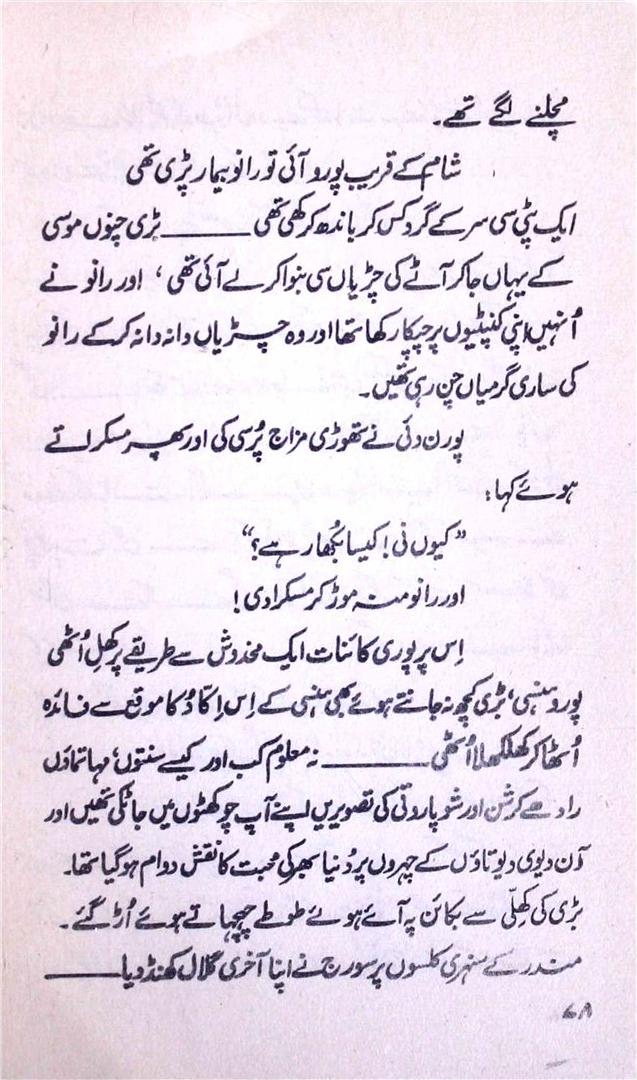 مچلنے لگے تھے۔
شام کے قریب پورو آئی تو رانو بیمار پڑی تھی
ایک پٹی سی سر کے گرد کس کر باندھ کر رکھی تھی ــــــــــ بڑی چنوں موسی
کے یہاں جا کر آٹے کی چڑیاں سی بنوا کر لے آئی تھی ، اور رانو نے
اُنہیں اپنی کنپٹیوں پر چپکا رکھا تھا اور وہ چــڑیاں دانہ دانہ کر کے رانو
کی ساری گرمیاں چن رہی تھیں۔
پورن دئی نے تھوڑی مزاج پُرسی کی اور پھر مسکراتے
ہوئے کہا:
”کیوں نی! کیسا بُخار ہے؟“
اور رانو منہ موڑ کر مسکرا دی!
اِس پر پوری کائنات ایک مخدوش سے طریقے پر کھِل اُٹھی
پورو ہنسی، بڑی کچھ نہ جانتے ہوئے بھی ہنسی کے اِس اِکّا دُکا موقع سے فائدہ
اُٹھا کر کھلکھلا اُٹھی ــــــــــ نہ معلوم کب اور کیسے سنتوں، مہاتماؤں
رادھے کرشن اور شو پاروتی کی تصویریں اپنے آپ چوکھٹوں میں جا ٹکی تھیں اور
اُن دیوی دیوتاؤں کے چہروں پر دُنیا بھر کی محبت کا نقش دوام ہو گیا تھا۔
بڑی کی کھِلّی سے بکائن پہ آئے ہوئے طوطے چہچہاتے ہوئے اُڑ گئے۔
مندر کے سنہری کلسوں پر سورج نے اپنا آخری گلال کھنڈ دیا ــــــــــ
۷۸